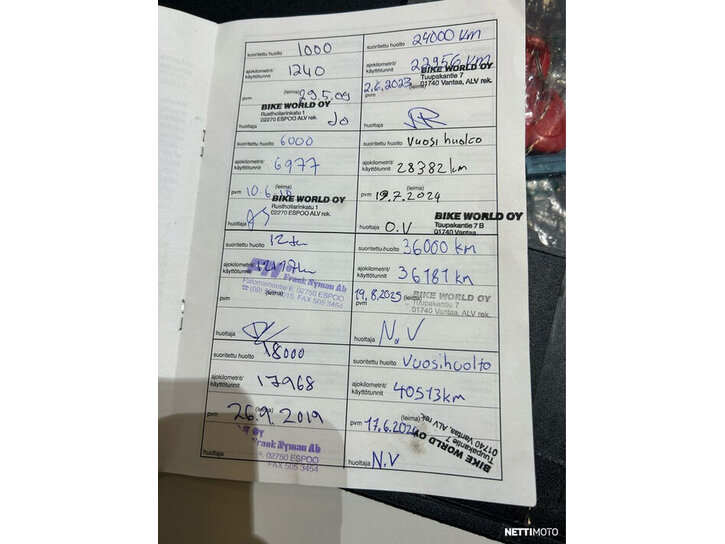 suoritettu huolto 1000
ajokilometrit/
käyttötunnit 1240
(leima)
pvm 29.5.09
BIKE WORLD OY
Rusthollarinkatu 1
02270 ESPOO ALV rek.
huoltaja Jo
suoritettu huolto 6000
ajokilometrit/
käyttötunnit 6977
(leima)
pvm 10.6.10
BIKE WORLD OY
Rusthollarinkatu 1
02270 ESPOO ALV rek.
huoltaja AS
suoritettu huolto
ajokilometrit/
käyttötunnit
Oy
Frank Nyman Ab
02750 ESPOO
FAX 505 3454
(leima)
pvm
huoltaja
suoritettu huolto 18000
ajokilometrit/
käyttötunnit 17968
(leima)
pvm 26.9.2019
Oy
Frank Nyman Ab
02750 ESPOO
FAX 505 3454
huoltaja
suoritettu huolto 24000 km
ajokilometrit/
käyttötunnit 22956 km
BIKE WORLD OY
Tuupakantie 7
01740 Vantaa, ALV rek.
(leima)
pvm 2.6.2023
huoltaja
suoritettu huolto Vuosihuolto
ajokilometrit/
käyttötunnit 28382 km
(leima)
pvm 19.7.2024
BIKE WORLD OY
Tuupakantie 7 B
01740 Vantaa
huoltaja O.V
suoritettu huolto 36000 km
ajokilometrit/
käyttötunnit 36181 km
(leima)
pvm 19.8.2025
BIKE WORLD OY
Tuupakantie 7
01740 Vantaa, ALV rek.
huoltaja N.V
suoritettu huolto Vuosihuolto
ajokilometrit/
käyttötunnit 40513km
(leima)
pvm 17.6.2026
BIKE WORLD OY
Tuupakantie 7
01740 Vantaa, ALV rek.
huoltaja N.V
NETTIMOTO